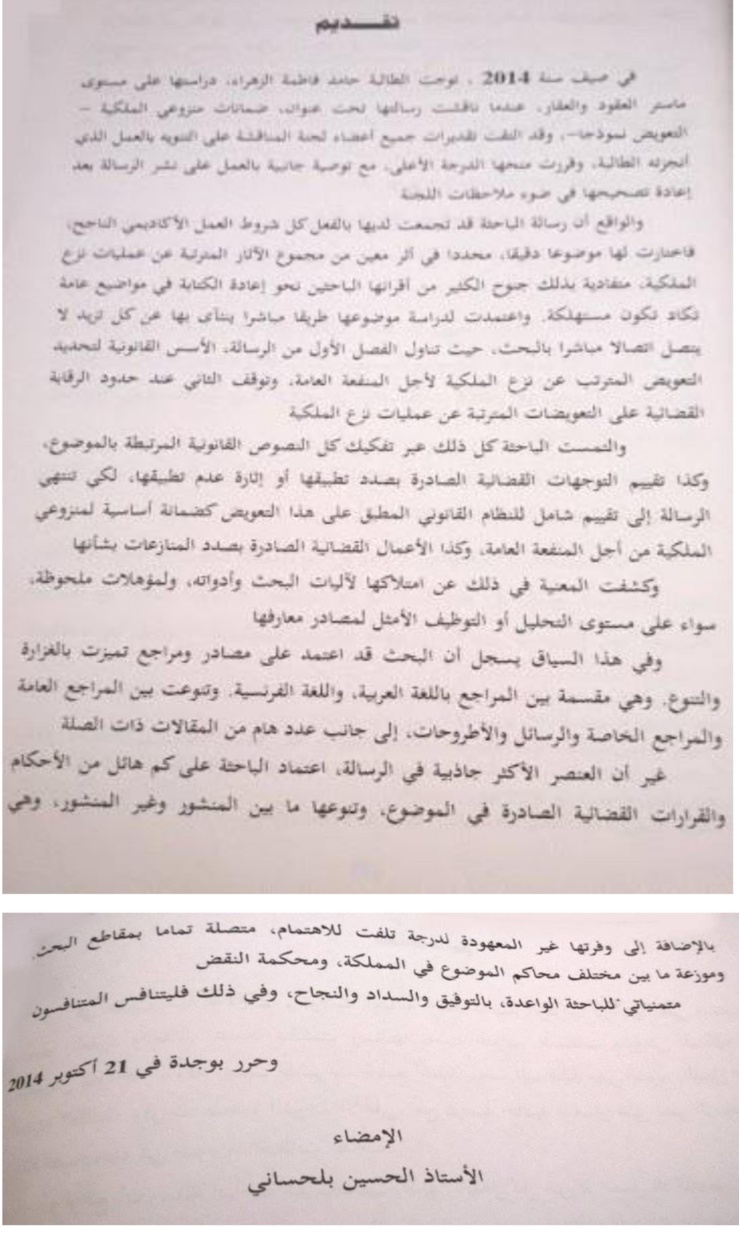 تقـــديم
في صيف سنة 2014 ، توجت الطالبة حامد فاطمة الزهراء، دراستها على مستوى
ماستر العقود والعقار، عندما ناقشت رسالتها تحت عنوان، ضمانات منزوعي الملكية –
التعويض نموذجا–، وقد التقت تقديرات جميع أعضاء لجنة المناقشة على التنويه بالعمل الذي
أنجزته الطالبة، وقررت منحها الدرجة الأعلى، مع توصية جانبية بالعمل على نشر الرسالة بعد
إعادة تصحيحها في ضوء ملاحظات اللجنة
والواقع أن رسالة الباحثة قد تجمعت لديها بالفعل كل شروط العمل الأكاديمي الناجح،
فاختارت لها موضوعا دقيقا، محددا في أثر معين من مجموع الآثار المترتبة عن عمليات نزع
الملكية، متفادية بذلك جنوح الكثير من أقرانها الباحثين نحو إعادة الكتابة في مواضيع عامة
تكاد تكون مستهلكة. واعتمدت لدراسة موضوعها طريقا مباشرا ينتأى بها عن كل تزيد لا
يتصل اتصالا مباشرا بالبحث، حيث تناول الفصل الأول من الرسالة، الأسس القانونية لتحديد
التعويض المترتب عن نزع الملكية لأجل المنفعة العامة، وتوقف الثاني عند حدود الرقابة
القضائية على التعويضات المترتبة عن عمليات نزع الملكية
والتمست الباحثة كل ذلك عبر تفكيك كل النصوص القانونية المرتبطة بالموضوع،
وكذا تقييم التوجهات القضائية الصادرة بصدد تطبيقها أو إثارة عدم تطبيقها، لكي تنتهي
الرسالة إلى تقييم شامل للنظام القانوني المطبق على هذا التعويض كضمانة أساسية لمنزوعي
الملكية من أجل المنفعة العامة، وكذا الأعمال القضائية الصادرة بصدد المنازعات بشأنها
وكشفت المعنية في ذلك عن امتلاكها لآليات البحث وأدواته، ولمؤهلات ملحوظة،
سواء على مستوى التحليل أو التوظيف الأمثل لمصادر معارفها
وفي هذا السياق يسجل أن البحث قد اعتمد على مصادر ومراجع تميزت بالغزارة
والتنوع. وهي مقسمة بين المراجع باللغة العربية، واللغة الفرنسية. وتنوعت بين المراجع العامة
والمراجع الخاصة والرسائل والأطروحات، إلى جانب عدد هام من المقالات ذات الصلة
غير أن العنصر الأكثر جاذبية في الرسالة، اعتماد الباحثة على كم هائل من الأحكام
والقرارات القضائية الصادرة في الموضوع، وتنوعها ما بين المنشور وغير المنشور، وهي
بالإضافة إلى وفرتها غير المعهودة لدرجة تلفت للاهتمام، متصلة تماما بمقاطع البحث.
وموزعة ما بين مختلف محاكم الموضوع في المملكة، ومحكمة النقض
متمنياتي للباحثة الواعدة، بالتوفيق والسداد والنجاح، وفي ذلك فليتنافس المتنافسون
وحرر بوجدة في 21 أكتوبر 2014
الإمضاء
الأستاذ الحسين بلحساني